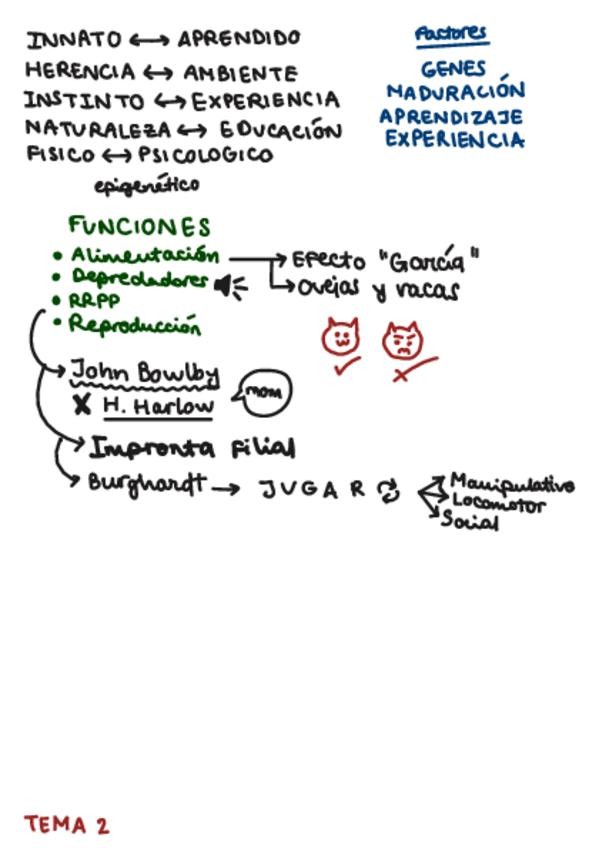 INNATO ↔ APRENDIDO
HERENCIA ↔ AMBIENTE
INSTINTO ↔ EXPERIENCIA
NATURALEZA ↔ EDUCACIÓN
FISICO ↔ PSICOLOGICO
epigenético
Factores
GENES
MADURACIÓN
APRENDIZAJE
EXPERIENCIA
FUNCIONES
• Alimentación → Efecto "García"
→ Ovejas y vacas
• Depredadores
• RRPP
• Reproducción
→ John Bowlby
X H. Harlow
mom
→ Impronta filial
→ Burghardt → JUGAR
Manipulativo
Locomotor
Social
TEMA 2